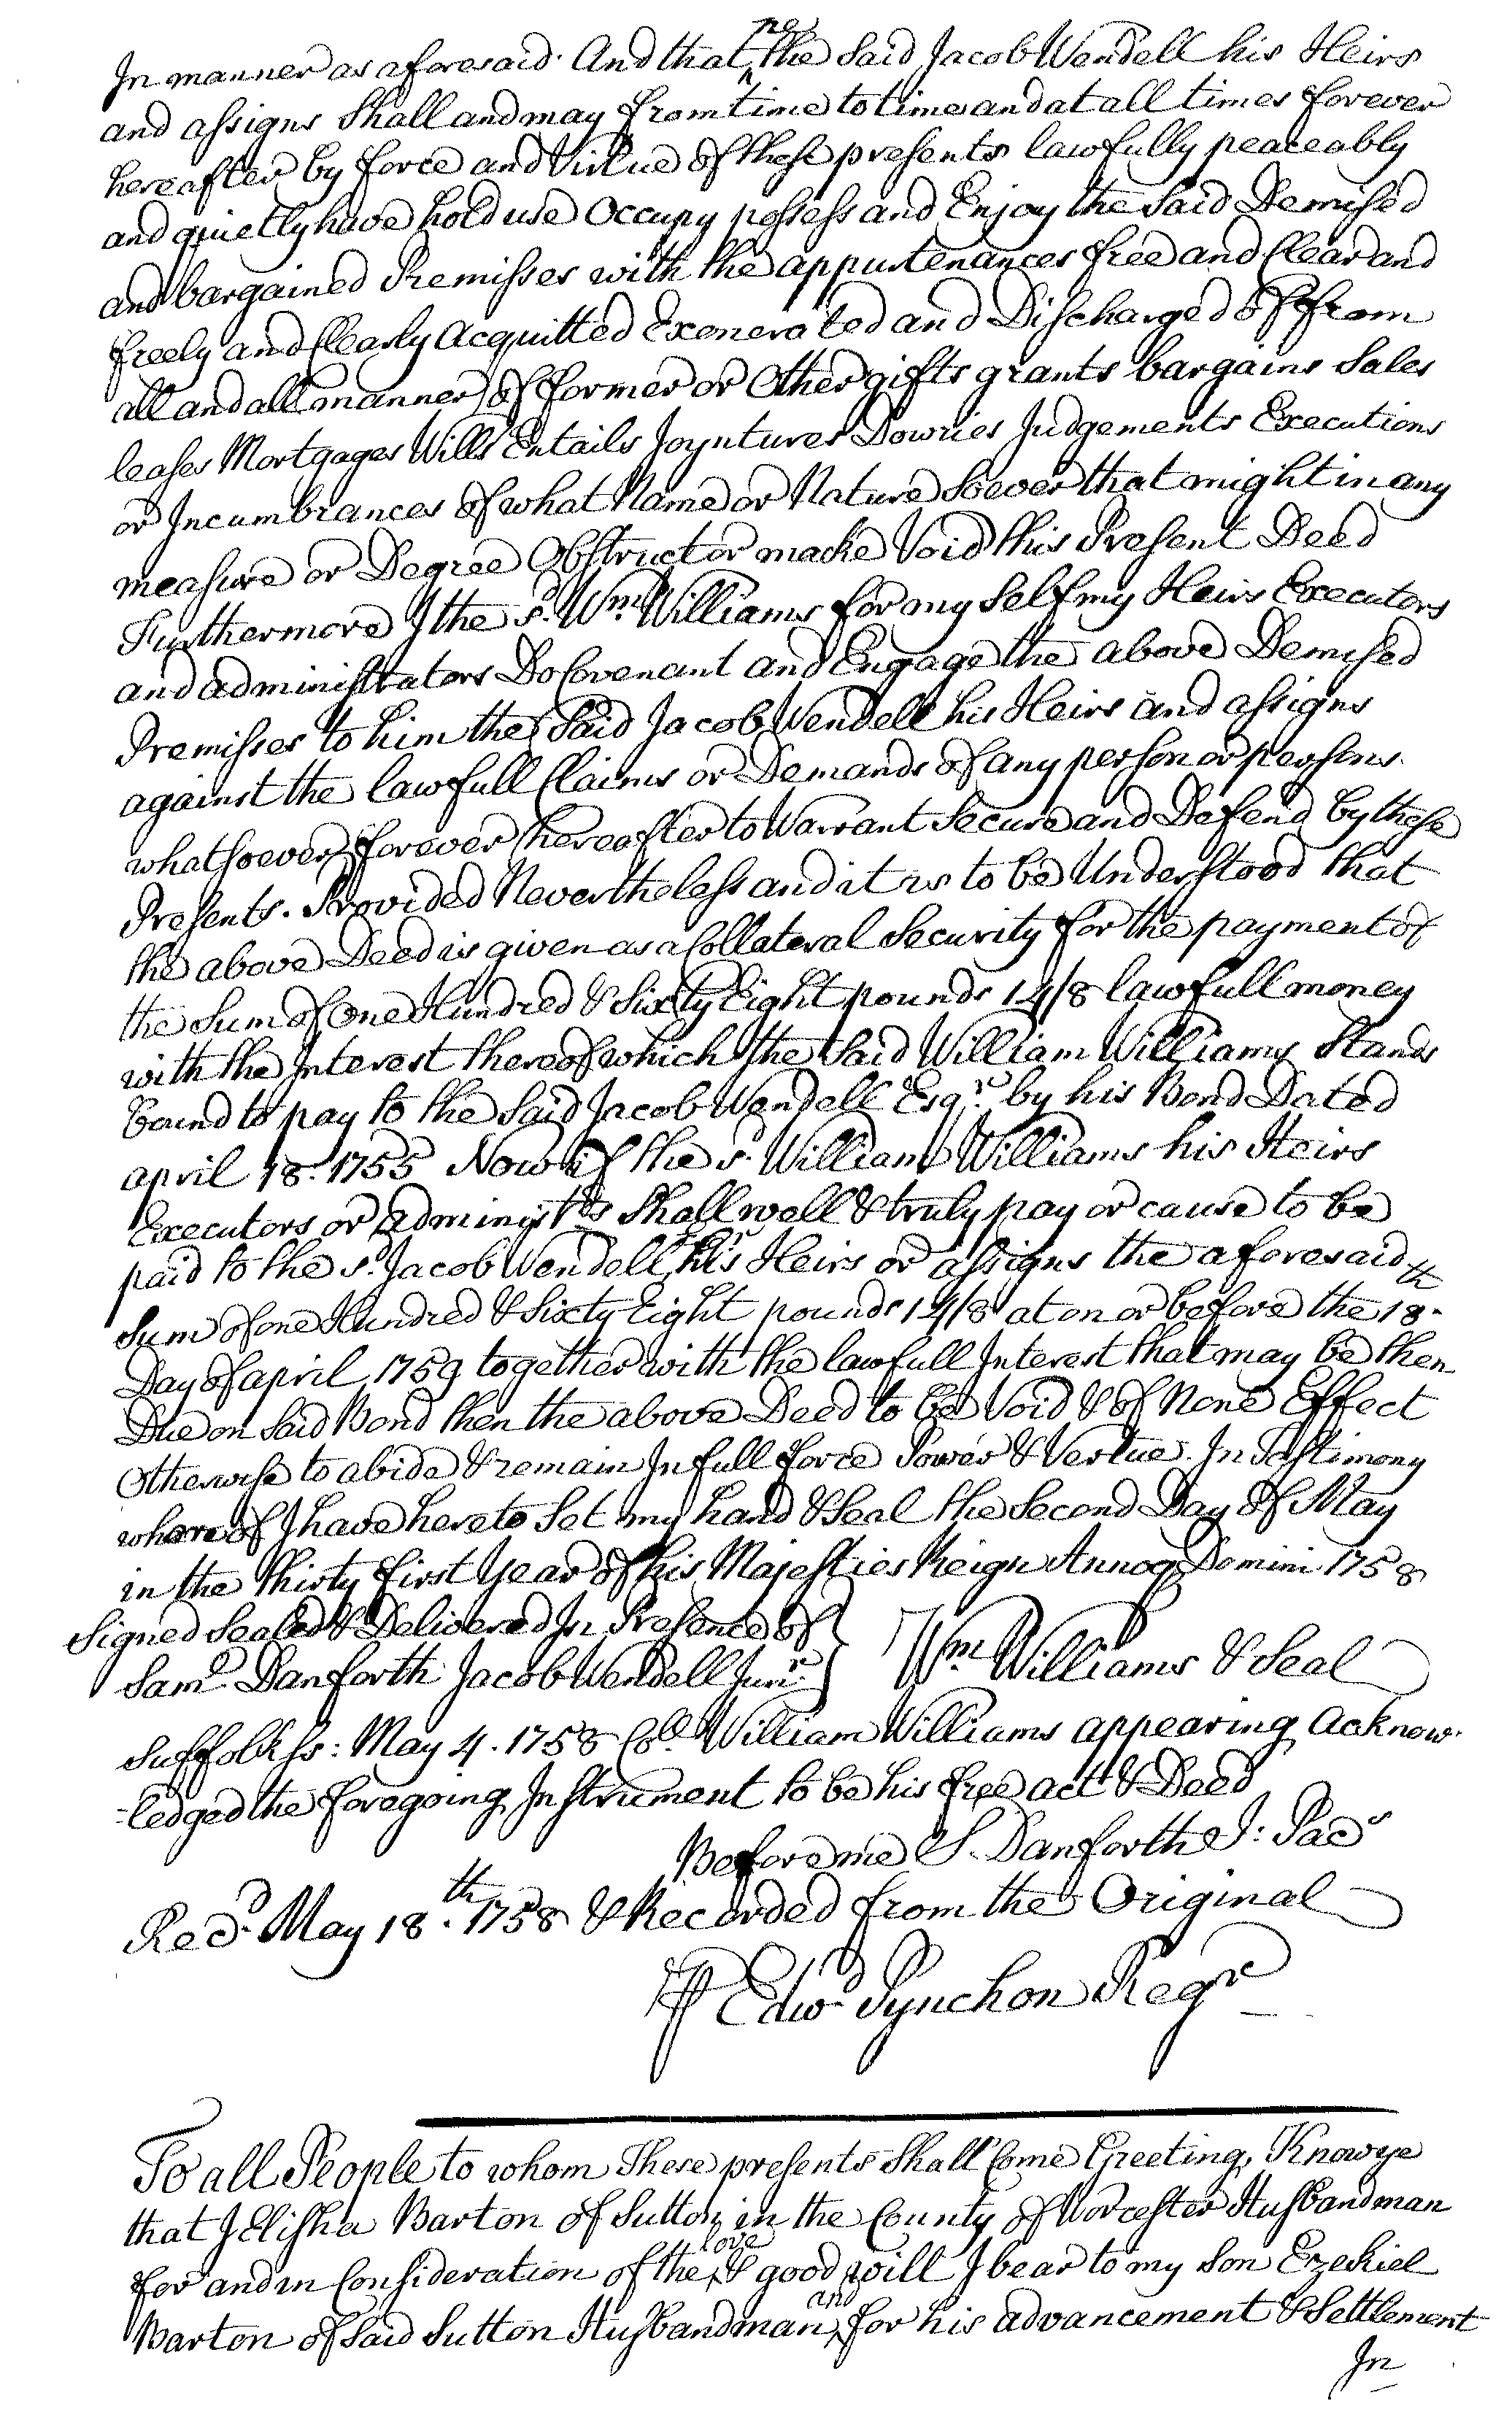 In manner as aforesaid. And that he the Said Jacob Wendell his Heirs
and assigns Shall and may from time to time and at all times forever
hereafter by force and Virtue of these presents lawfully peaceably
and quietly have hold use Occupy possess and Enjoy the Said Demised
and bargained Premisses with the appurtenances free and Clear and
freely and Clearly Acquitted Exonerated and Discharged of from
all and all manner of former or Other gifts grants bargains Sales
leases Mortgages Wills Entails Joyntures Dowries Judgements Executions
or Incumbrances of what Name or Nature Soever that might in any
measure or Degree Obstruct or make Void this Present Deed
Furthermore I the sd. Wm. Williams for my Self my Heirs Executors
and administrators Do Covenant and Engage the above Demised
Premisses to him the Said Jacob Wendell his Heirs and assigns
against the lawfull Claims or Demands of any person or persons
whatsoever forever hereafter to Warrant Secure and Defend by these
Presents. Provided Nevertheless and it is to be Understood that
the above Deed is given as a Collateral Security for the payment of
the Sum of One Hundred & Sixty Eight pounds 14/8 lawfull money
with the Interest thereof which the Said William Williams Stands
bound to pay to the Said Jacob Wendell Esqr. by his Bond Dated
april 18. 1755 Now if the sd. William Williams his Heirs
Executors or administrs Shall well & truly pay or cause to be
paid to the sd. Jacob Wendell his Heirs or assigns the aforesaid
Sum of one Hundred & Sixty Eight pounds 14/8 at on or before the 18th
Day of april 1759 together with the lawfull Interest that may be then
Due on Said Bond then the above Deed to be Void & of None Effect
Otherwise to abide & remain In full force Power & Vertue. In Testimony
whereof I have hereto Set my hand & Seal the Second Day of May
in the Thirty first Year of his Majesties Reign Annoq Domini 1758
Signed Sealed & Delivered In Presence of } Wm Williams & Seal
Saml. Danforth Jacob Wendell Junr.
Suffolk ss: May 4. 1758 Coll. William Williams appearing Acknow-
-ledged the foregoing Instrument to be his free act & Deed
Before me S. Danforth J: Pacs
Recd. May 18th. 1758 & Recorded from the Original
P Edwd Pynchon Regr
To all People to whom These presents Shall Come Greeting, Know ye
that I Elisha Barton of Sutton in the County of Worcester Husbandman
for and in Consideration of the love & good will I bear to my Son Ezekiel
Barton of Said Sutton Husbandman and for his advancement & Settlement
In